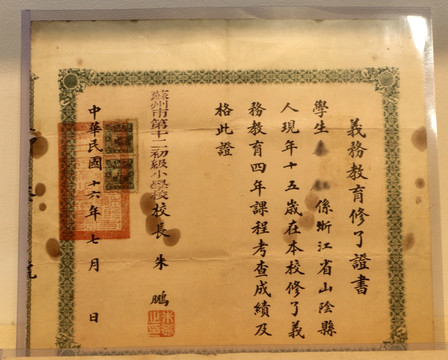 義務教育修了證書
學生 係浙江省山陰縣
人現年十五歲在本校修了義
務教育四年課程考查成績及
格此證
蘇州市第十二初級小學校校長 朱鵬
中華民國十六年七月 日